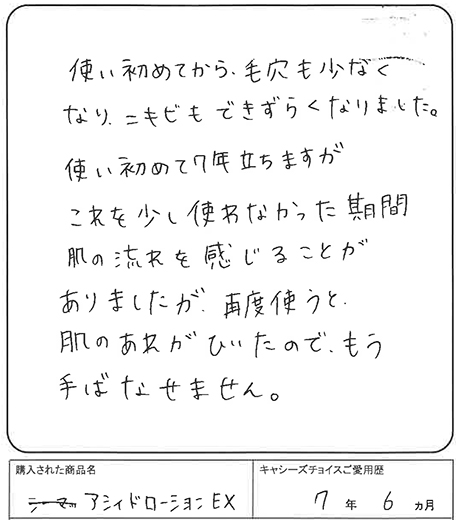 使い初めてから、毛穴も少なく
なり、ニキビもできずらくなりました。
使い初めて7年立ちますが
これを少し使わなかった期間
肌の流れを感じることが
ありましたが、再度使うと、
肌のあれがひいたので、もう
手ばなせません。
購入された商品名
アシィドローションEX
キャシーズチョイスご愛用歴
7年6ヵ月